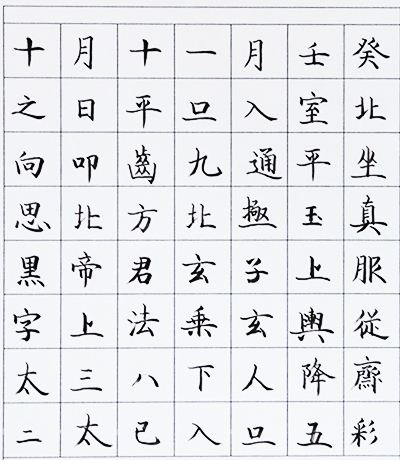 十月十一月壬癸
之日平旦入室北
向叩齒九通平坐
思北方北極玉真
黑帝君玄子上服
字上法乘玄輿從
太三八下人降齋
二太已入口五彩